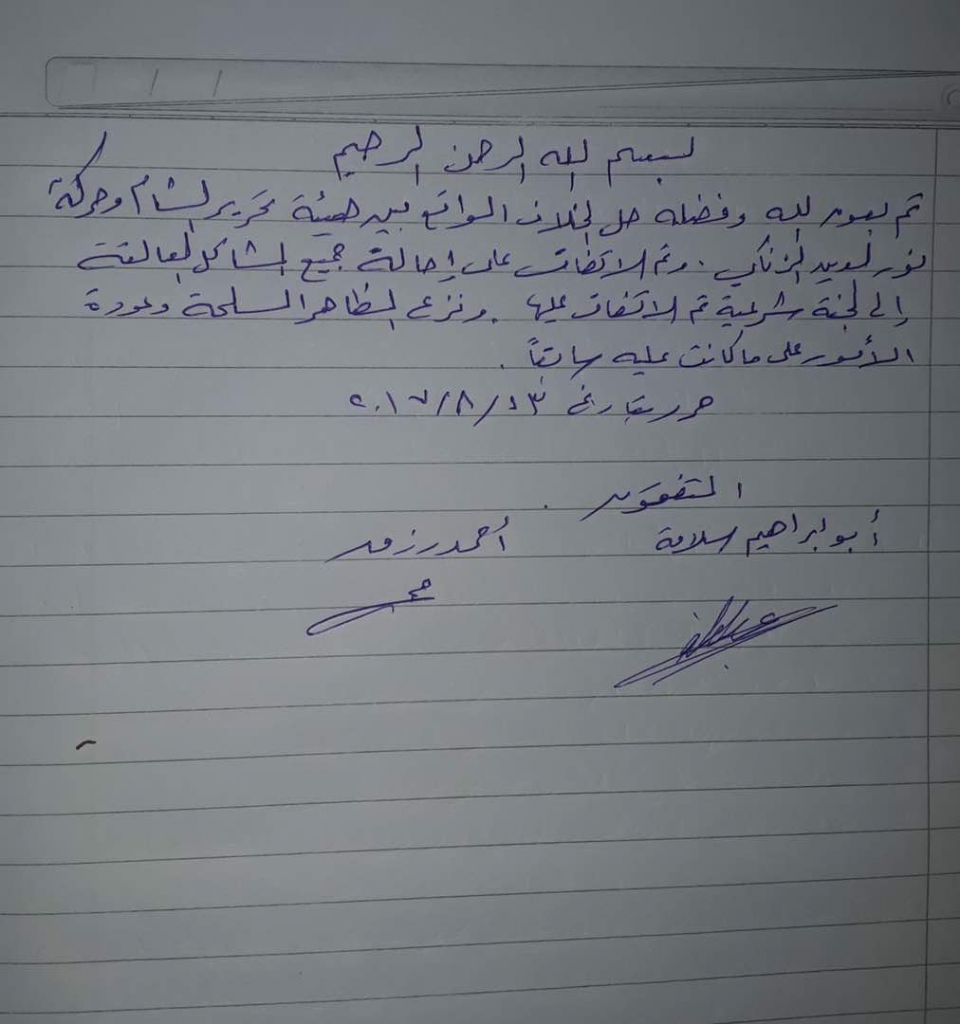 بسم الله الرحمن الرحيم
تم بعون الله وفضله حل الخلاف الواقع بين هيئة تحرير الشام وحركة
نور الدين الزنكي . وتم الاتفاق على إحالة جميع المشاكل العالقة
إلى لجنة شرعية تم الاتفاق عليها . ونزع المظاهر المسلحة وعودة
الأمور على ما كانت عليه سابقاً .
حرر بتاريخ ٢٣/٨/٢٠١٧
المتفقون
أبو إبراهيم سلامة أحمد رزق